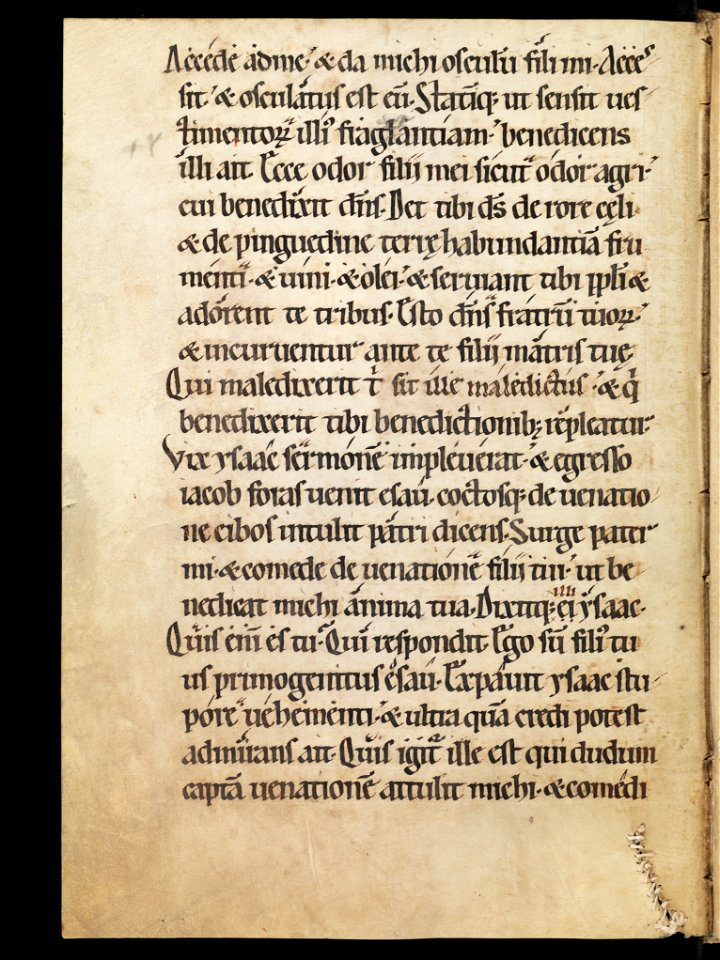 Accede ad me. & da michi osculū fili mi. Acces
sit. & osculatus est eū. Statīq; ut sensit ues
timentoꝝ illiꝰ fraglantiam. benedicens
illi ait. Ecce odor filii mei sicut odor agri.
cui benedixit dn̄s. Det tibi ds̄ de rore cęli.
& de pinguedine terrę habundantiā fru
menti. & uini. & olei. & seruiant tibi ppl̄i &
adorent te tribus. Esto dn̄s fratrū tuoꝝ.
& incuruentur ante te filii matris tuę.
Qui maledixerit t̄ sit ille maledictus. & q̄
benedixerit tibi benedictionib; repleatur.
Vix ysaac sermonē impleuerat. & egresso
iacob foras uenit esau. coctosq; de uenatio
ne cibos intulit patri dicens. Surge pater
mi. & comede de uenationē filii tui. ut be
nedicat michi anima tua. Dixitq; ei ysaac.
Quis eni̅ es tu. Qui respondit. Ego sū filiꝰ tu
us primogenitus esau. Expauit ysaac stu
pore uehementi. & ultra quā credi potest
admirans ait. Quis igit̄ ille est qui dudum
captā uenationē attulit michi. & comedi